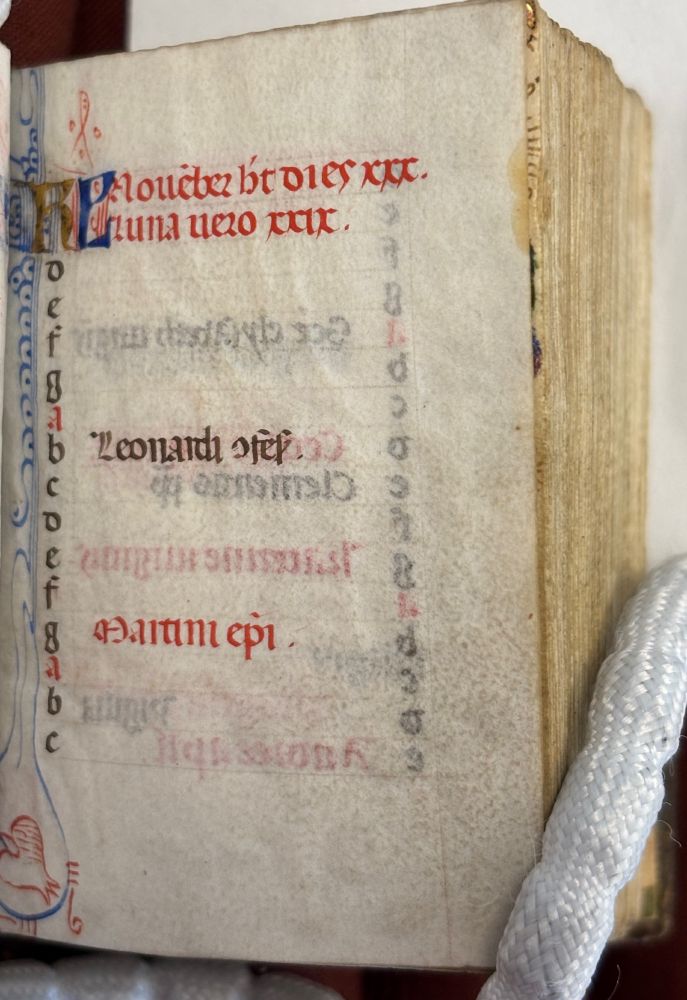 KL Nouēber h̄t dies xxx.
luna uero xxix.
d
e
f
g
a
b Leonardi ɔfeſ.
c
d
e
f
g Martini ep̄i.
a
b
c